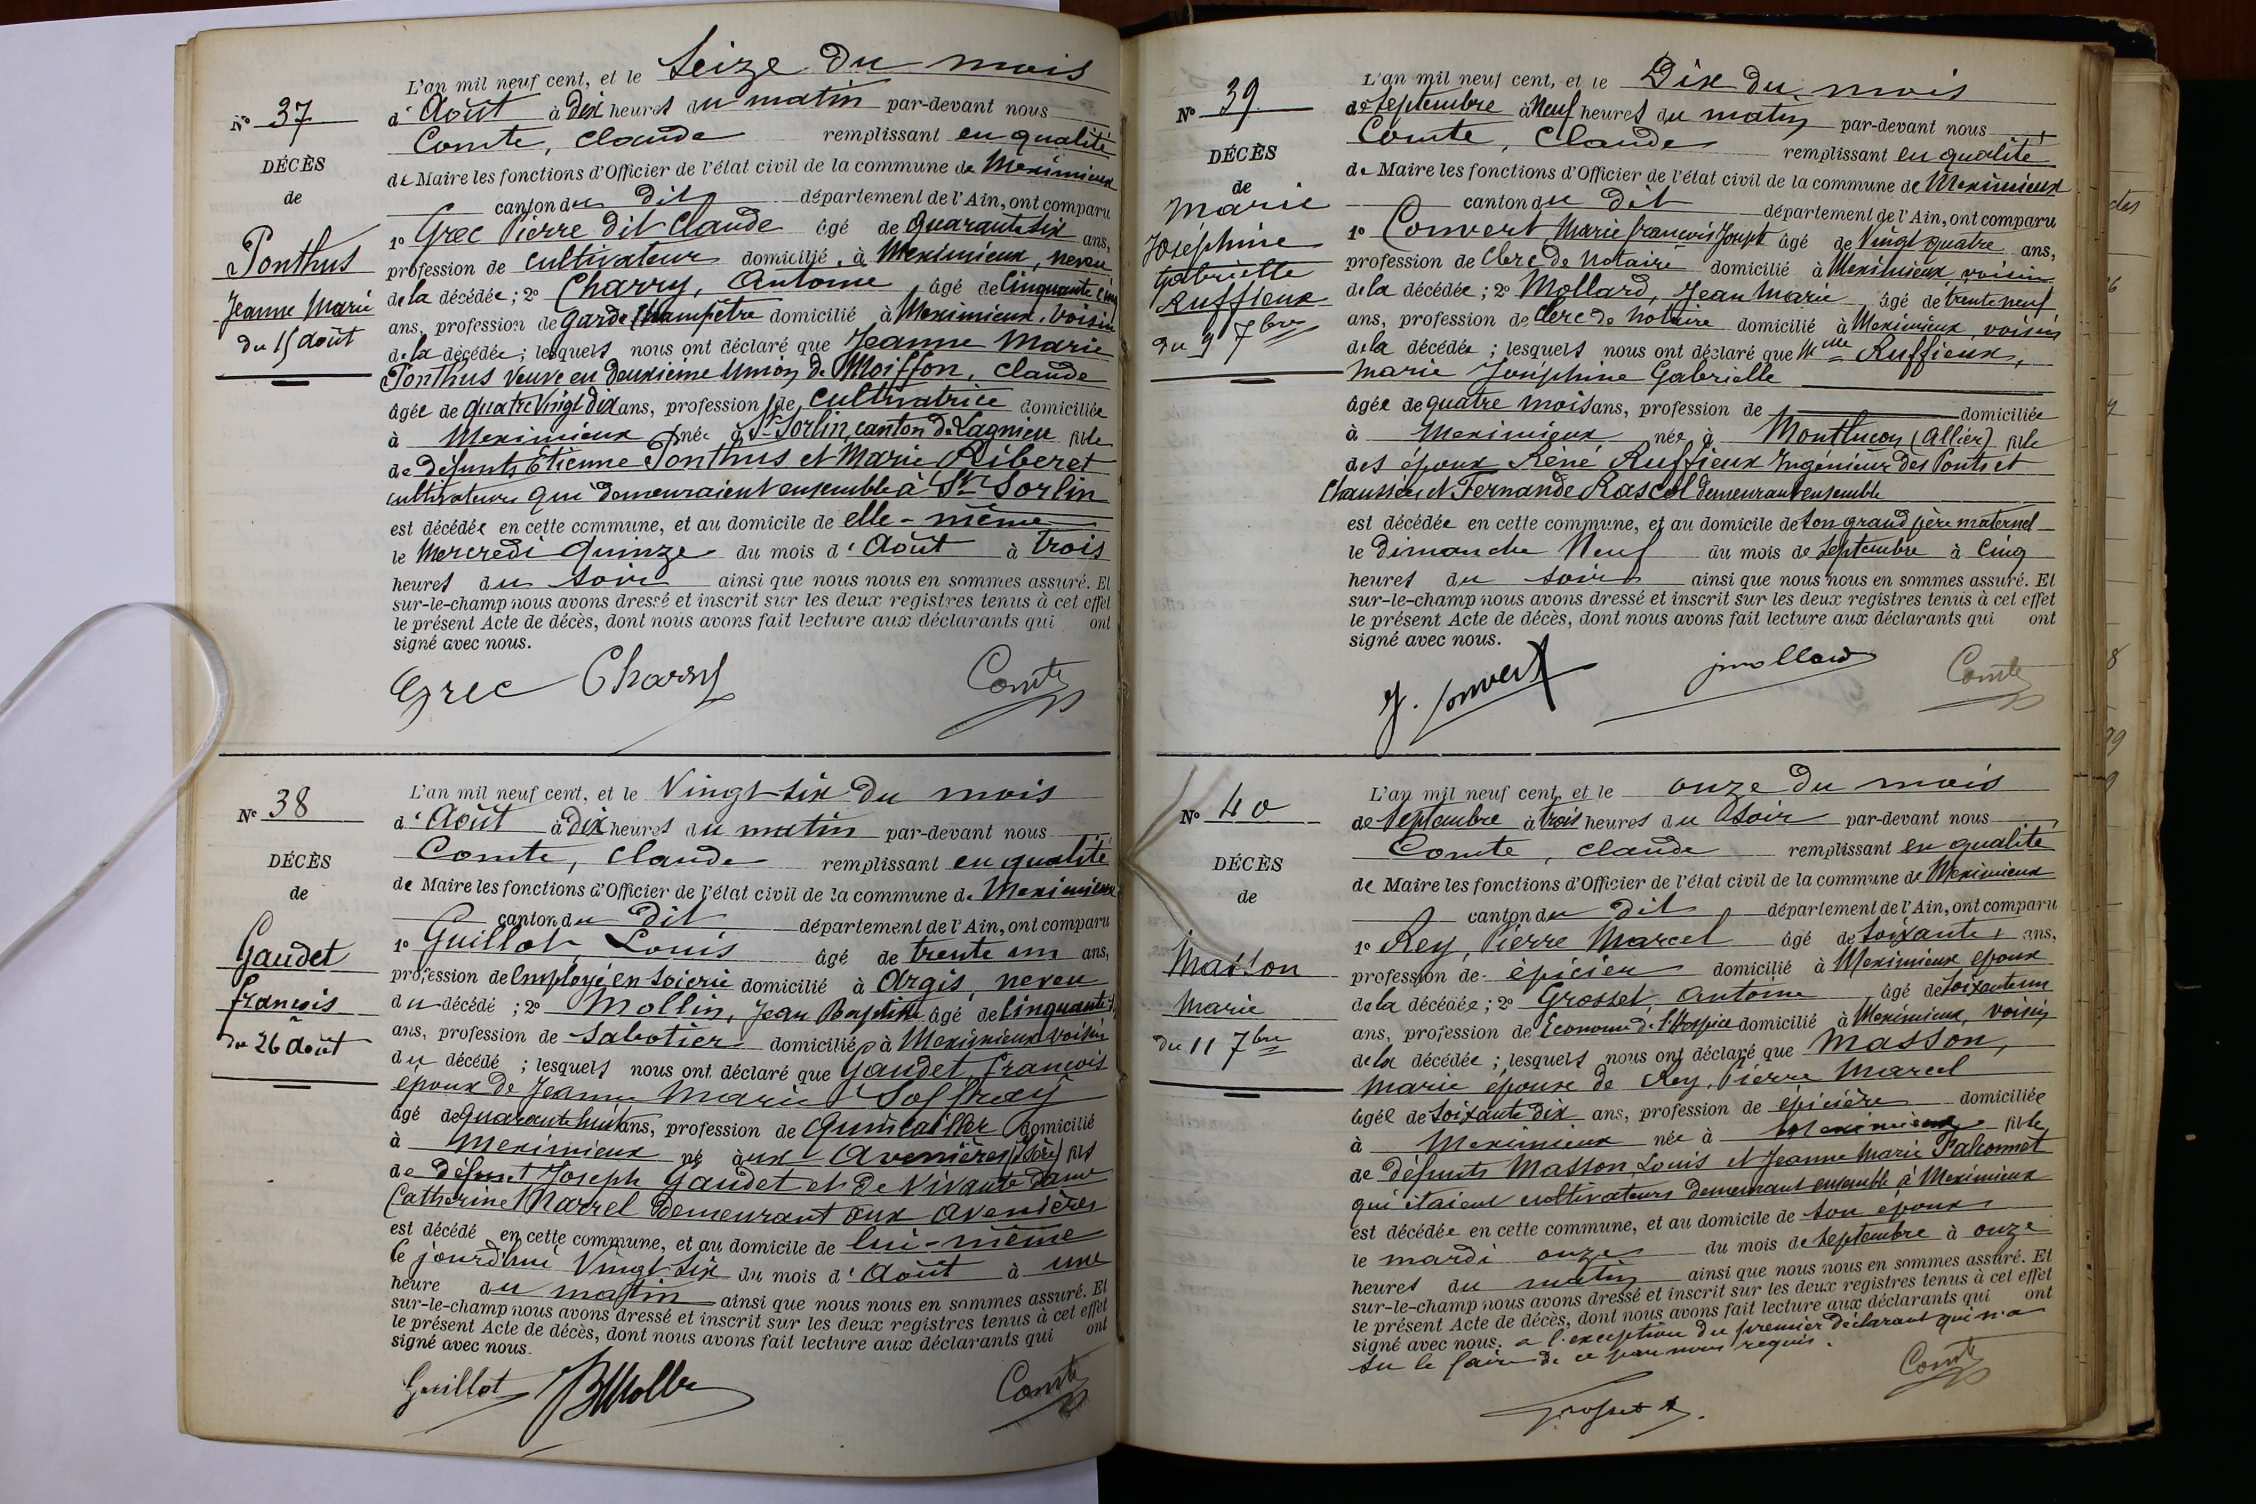 L'an mil neuf cent, et le Seize du mois
Nº 37
d'Août à dix heures du matin par-devant nous
Comte, Claude remplissant en qualité
DÉCÈS
de Maire les fonctions d'Officier de l'état civil de la commune de Meximieux
de
canton du dit département de l'Ain, ont comparu
1º Grec Pierre dit Claude âgé de quarante six ans,
Ponthus
profession de cultivateur domicilié à Meximieux, neveu
Jeanne Marie
de la décédée; 2º Charry, Antoine âgé de Cinquante cinq
du 15 août
ans, profession de garde Champêtre domicilié à Meximieux, voisin
de la décédée; lesquels nous ont déclaré que Jeanne Marie
Ponthus veuve en deuxième Union de Moiffon, Claude
âgée de quatre vingt dix ans, profession de cultivatrice domiciliée
à Meximieux née à St Sorlin, canton de Lagnieu fille
de défunts Etienne Ponthus et Marie Riberet
cultivateurs qui demeuraient ensemble à St Sorlin
est décédée en cette commune, et au domicile de elle-même
le Mercredi quinze du mois d'Août à trois
heures du soir ainsi que nous nous en sommes assuré. Et
sur-le-champ nous avons dressé et inscrit sur les deux registres tenus à cet effet
le présent Acte de décès, dont nous avons fait lecture aux déclarants qui ont
signé avec nous.
Grec Charry Comte
L'an mil neuf cent, et le Vingt-six du mois
Nº 38
d'Août à dix heures du matin par-devant nous
Comte, Claude remplissant en qualité
DÉCÈS
de Maire les fonctions d'Officier de l'état civil de la commune de Meximieux
de
canton du dit département de l'Ain, ont comparu
1º Guillot Louis âgé de trente un ans,
Gaudet
profession de Employé en Soierie domicilié à Argis, neveu
françois
du décédé; 2º Mollin, Jean Baptiste âgé de Cinquante
ans, profession de Sabotier domicilié à Meximieux voisin
du 26 Août
du décédé; lesquels nous ont déclaré que Gaudet, françois
époux de Jeanne Marie Soffray
âgé de quarante huit ans, profession de Quincailler domicilié
à Meximieux né aux Avenières (Isère) fils
de défunt Joseph Gaudet et de Vivante dame
Catherine Marrel demeurant aux Avenières
est décédé en cette commune, et au domicile de lui-même
le jourd'hui Vingt-six du mois d'Août à une
heure du matin ainsi que nous nous en sommes assuré. Et
sur-le-champ nous avons dressé et inscrit sur les deux registres tenus à cet effet
le présent Acte de décès, dont nous avons fait lecture aux déclarants qui ont
signé avec nous.
Guillot JBMollin Comte
L'an mil neuf cent, et le Dix du mois
Nº 39
de Septembre à Neuf heures du matin par-devant nous
Comte, Claude remplissant en qualité
DÉCÈS
de Maire les fonctions d'Officier de l'état civil de la commune de Meximieux
de
canton du dit département de l'Ain, ont comparu
Marie
Joséphine
Gabrielle
Ruffieux
du 9 7bre
1º Convert Marie françois Joseph âgé de Vingt quatre ans,
profession de Clerc de Notaire domicilié à Meximieux voisin
de la décédée; 2º Mollard, Jean Marie âgé de trente neuf
ans, profession de Clerc de Notaire domicilié à Meximieux, voisin
de la décédée; lesquels nous ont déclaré que Mlle Ruffieux,
Marie Joséphine Gabrielle
âgée de quatre mois ans, profession de domiciliée
à Meximieux née à Montluçon (Allier) fille
des époux Réné Ruffieux Ingénieur des Ponts et
Chaussées et Fernande Rascol demeurant ensemble
est décédée en cette commune, et au domicile de son grand père maternel
le dimanche Neuf du mois de Septembre à Cinq
heures du soir ainsi que nous nous en sommes assuré. Et
sur-le-champ nous avons dressé et inscrit sur les deux registres tenus à cet effet
le présent Acte de décès, dont nous avons fait lecture aux déclarants qui ont
signé avec nous.
J. Convert jmollard Comte
L'an mil neuf cent, et le onze du mois
Nº 40
de Septembre à trois heures du Soir par-devant nous
Comte, Claude remplissant en qualité
DÉCÈS
de Maire les fonctions d'Officier de l'état civil de la commune de Meximieux
de
canton du dit département de l'Ain, ont comparu
1º Rey, Pierre Marcel âgé de soixante ans,
Masson
profession de épicier domicilié à Meximieux époux
Marie
de la décédée; 2º Grosset, Antoine âgé de soixante un
ans, profession de Econome de l'Hospice domicilié à Meximieux, voisin
du 11 7bre
de la décédée; lesquels nous ont déclaré que Masson,
Marie épouse de Rey, Pierre Marcel
âgée de soixante dix ans, profession de épicière domiciliée
à Meximieux née à Meximieux fille
de défunts Masson Louis et Jeanne Marie Falconnet
qui étaient cultivateurs demeurant ensemble à Meximieux
est décédée en cette commune, et au domicile de son époux
le mardi onze du mois de Septembre à onze
heures du matin ainsi que nous nous en sommes assuré. Et
sur-le-champ nous avons dressé et inscrit sur les deux registres tenus à cet effet
le présent Acte de décès, dont nous avons fait lecture aux déclarants qui ont
signé avec nous. a l'exception du premier déclarant qui n'a
su le faire de ce par nous requis.
Grosset Comte